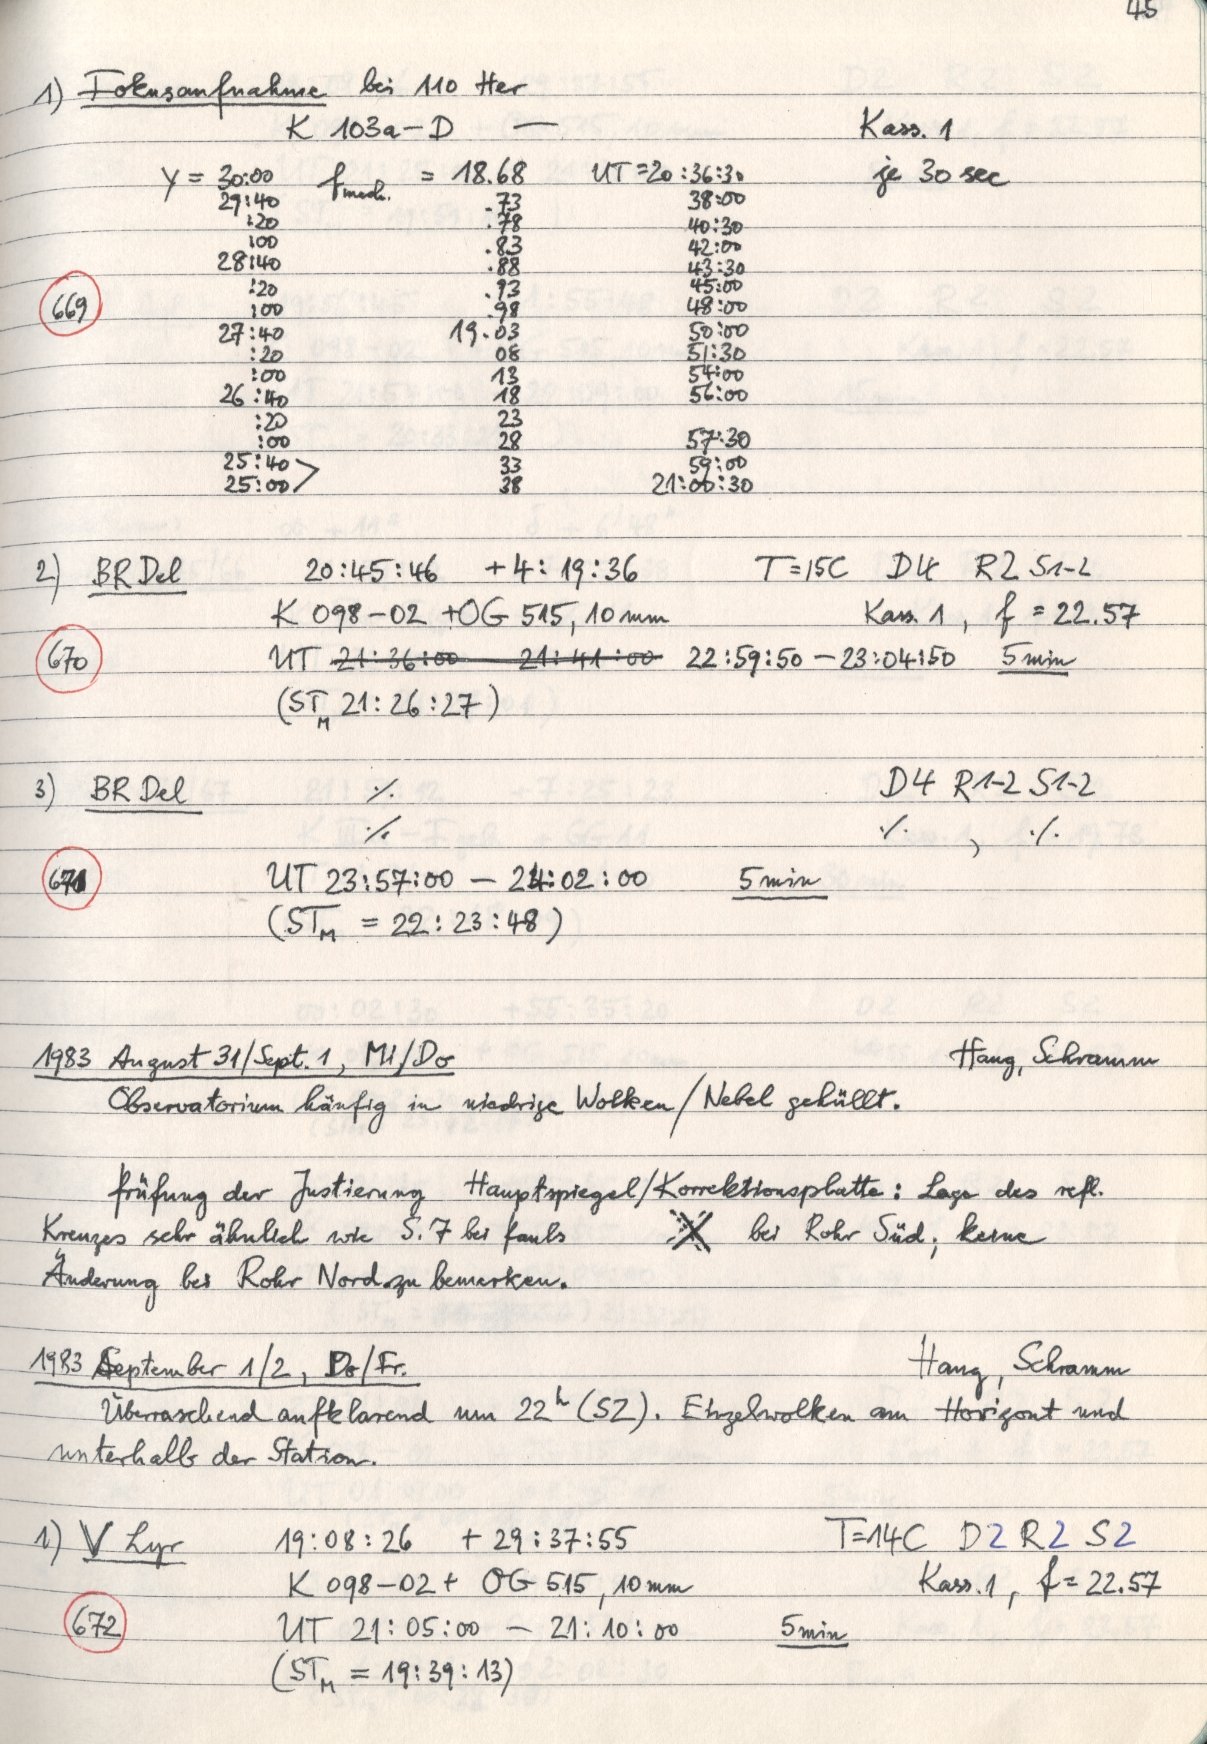 45
1) Fokusaufnahme bei 110 Her
K 103a-D — Kass. 1
Y = 30:00 fmech. = 18.68 UT = 20:36:30 je 30 sec
29:40 .73 38:00
:20 .78 40:30
:00 .83 42:00
28:40 .88 43:30
:20 .93 45:00
669 :00 .98 48:00
27:40 19.03 50:00
:20 08 51:30
:00 13 54:00
26:40 18 56:00
:20 23
:00 28 57:30
25:40 33 59:00
25:00 38 21:00:30
2) BR Del 20:45:46 +4:19:36 T=15C D4 R2 S1-2
K 098-02 +OG 515, 10 mm Kass. 1, f = 22.57
670 UT 21:36:00 21:41:00 22:59:50 - 23:04:50 5 min
(STM 21:26:27)
3) BR Del ·/. D4 R1-2 S1-2
·/. ·/. , ·/.
671 UT 23:57:00 - 24:02:00 5 min
(STM = 22:23:48)
1983 August 31/Sept. 1, Mi/Do Haug, Schramm
Observatorium häufig in niedrige Wolken/Nebel gehüllt.
Prüfung der Justierung Hauptspiegel/Korrektionsplatte: Lage des refl.
Kreuzes sehr ähnlich wie S. 7 bei Pauls bei Rohr Süd; keine
Änderung bei Rohr Nord zu bemerken.
1983 September 1/2, Do/Fr. Haug, Schramm
Überraschend aufklarend um 22h (SZ). Einzelwolken am Horizont und
unterhalb der Station.
1) V Lyr 19:08:26 + 29:37:55 T=14C D2 R2 S2
K 098-02 + OG 515, 10 mm Kass. 1, f = 22.57
672 UT 21:05:00 - 21:10:00 5 min
(STM = 19:39:13)